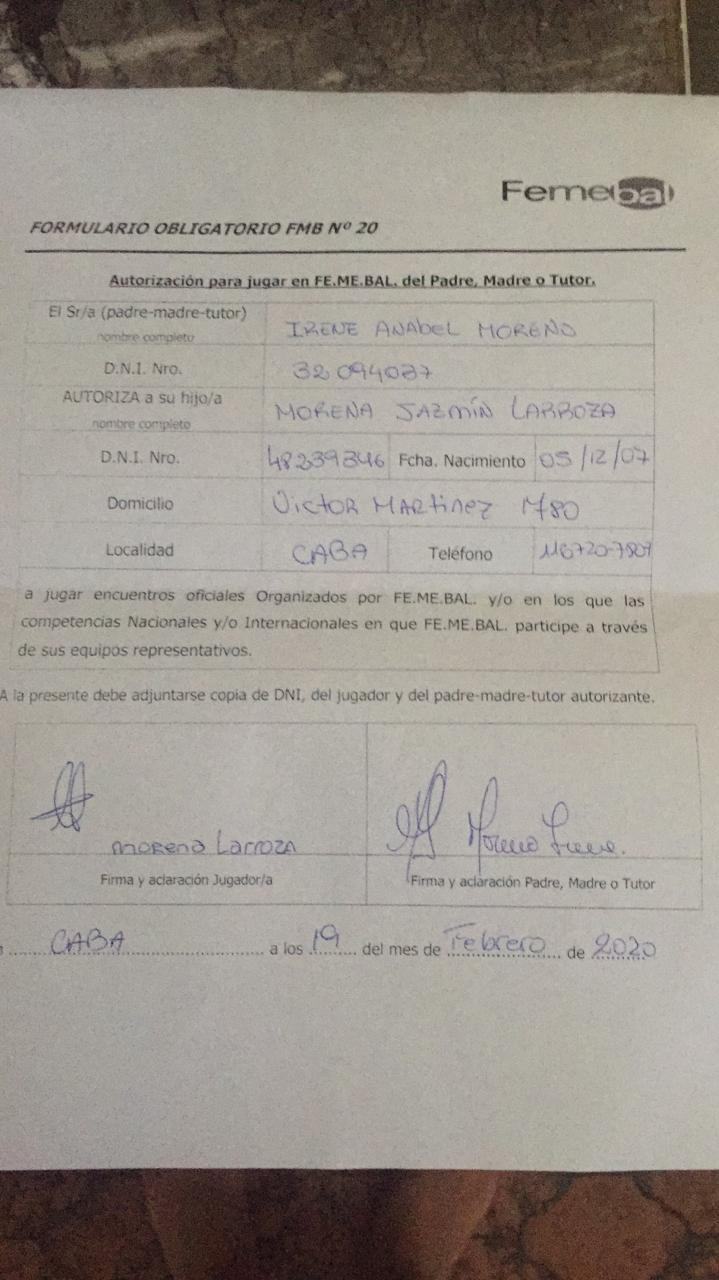 Femebal
FORMULARIO OBLIGATORIO FMB Nº 20
Autorización para jugar en FE.ME.BAL. del Padre, Madre o Tutor.
El Sr/a (padre-madre-tutor)
nombre completo
IRENE ANABEL MORENO
D.N.I. Nro. 32094037
AUTORIZA a su hijo/a
nombre completo
MORENA JAZMÍN LARROZA
D.N.I. Nro. 48239346 Fcha. Nacimiento 05/12/07
Domicilio VICTOR MARTINEZ 1780
Localidad CABA Teléfono
a jugar encuentros oficiales Organizados por FE.ME.BAL. y/o en los que las
competencias Nacionales y/o Internacionales en que FE.ME.BAL. participe a través
de sus equipos representativos.
A la presente debe adjuntarse copia de DNI, del jugador y del padre-madre-tutor autorizante.
morena Larroza
Moreno Irene.
Firma y aclaración Jugador/a
Firma y aclaración Padre, Madre o Tutor
CABA a los 19 del mes de Febrero de 2020